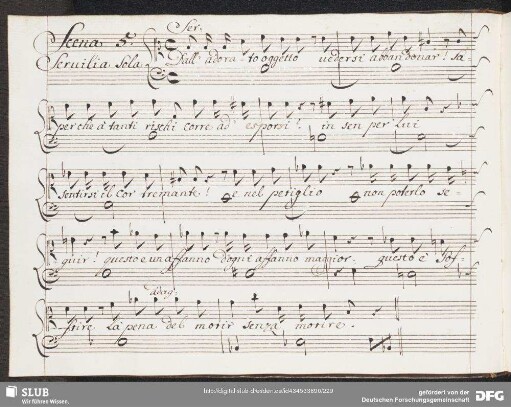 Scena 5.
Ser.
Servilia Sola
Dall' adora-to oggetto vedersi abbandonar! sa-
per che à tanti rischi corre ad esporsi! in sen per lui
sentirsi il cor tremante! e nel periglio non poterlo se-
guir! questo è un affanno d'ogni affanno maggior. questo è Sof-
frire la pena del morir senza morire.
SLUB
Wir führen Wissen.
gefördert von der
Deutschen Forschungsgemeinschaft
DFG